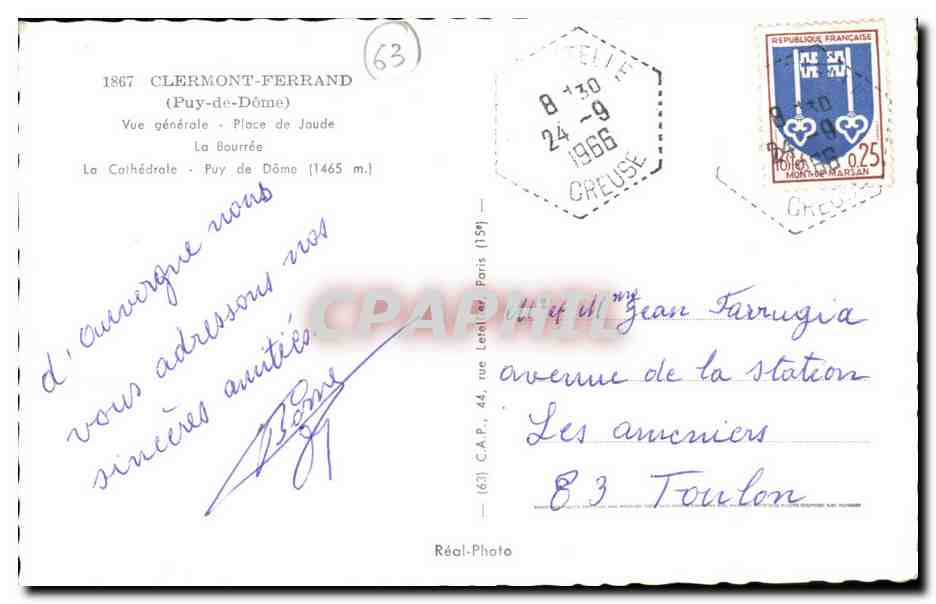 63
1867 CLERMONT-FERRAND
(Puy-de-Dôme)
Vue générale - Place de Jaude
La Bourrée
La Cathédrale - Puy de Dôme (1465 m.)
d'auvergne nous
vous adressons nos
sincères amitiés.
(63) C.A.P., 44, rue Letellier, Paris (15e)
8 H30
24 -9
1966
CREUSE
REPUBLIQUE FRANÇAISE
0,25
MONT-DE-MARSAN
8 H30
24 -9
1966
CREUSE
Mr et Mme Jean Farrugia
avenue de la station
Les ameniers
83 Toulon
Réal-Photo
CPAPHIL